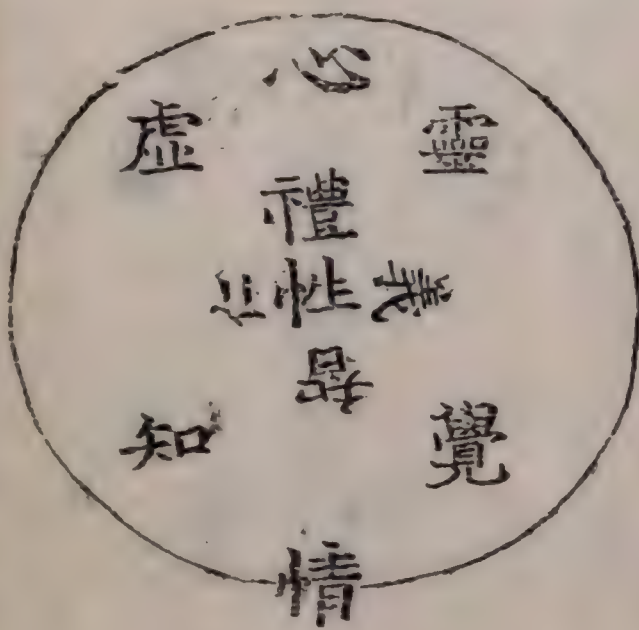 心
虛 靈
禮
仁 性 義
智
知 覺
情